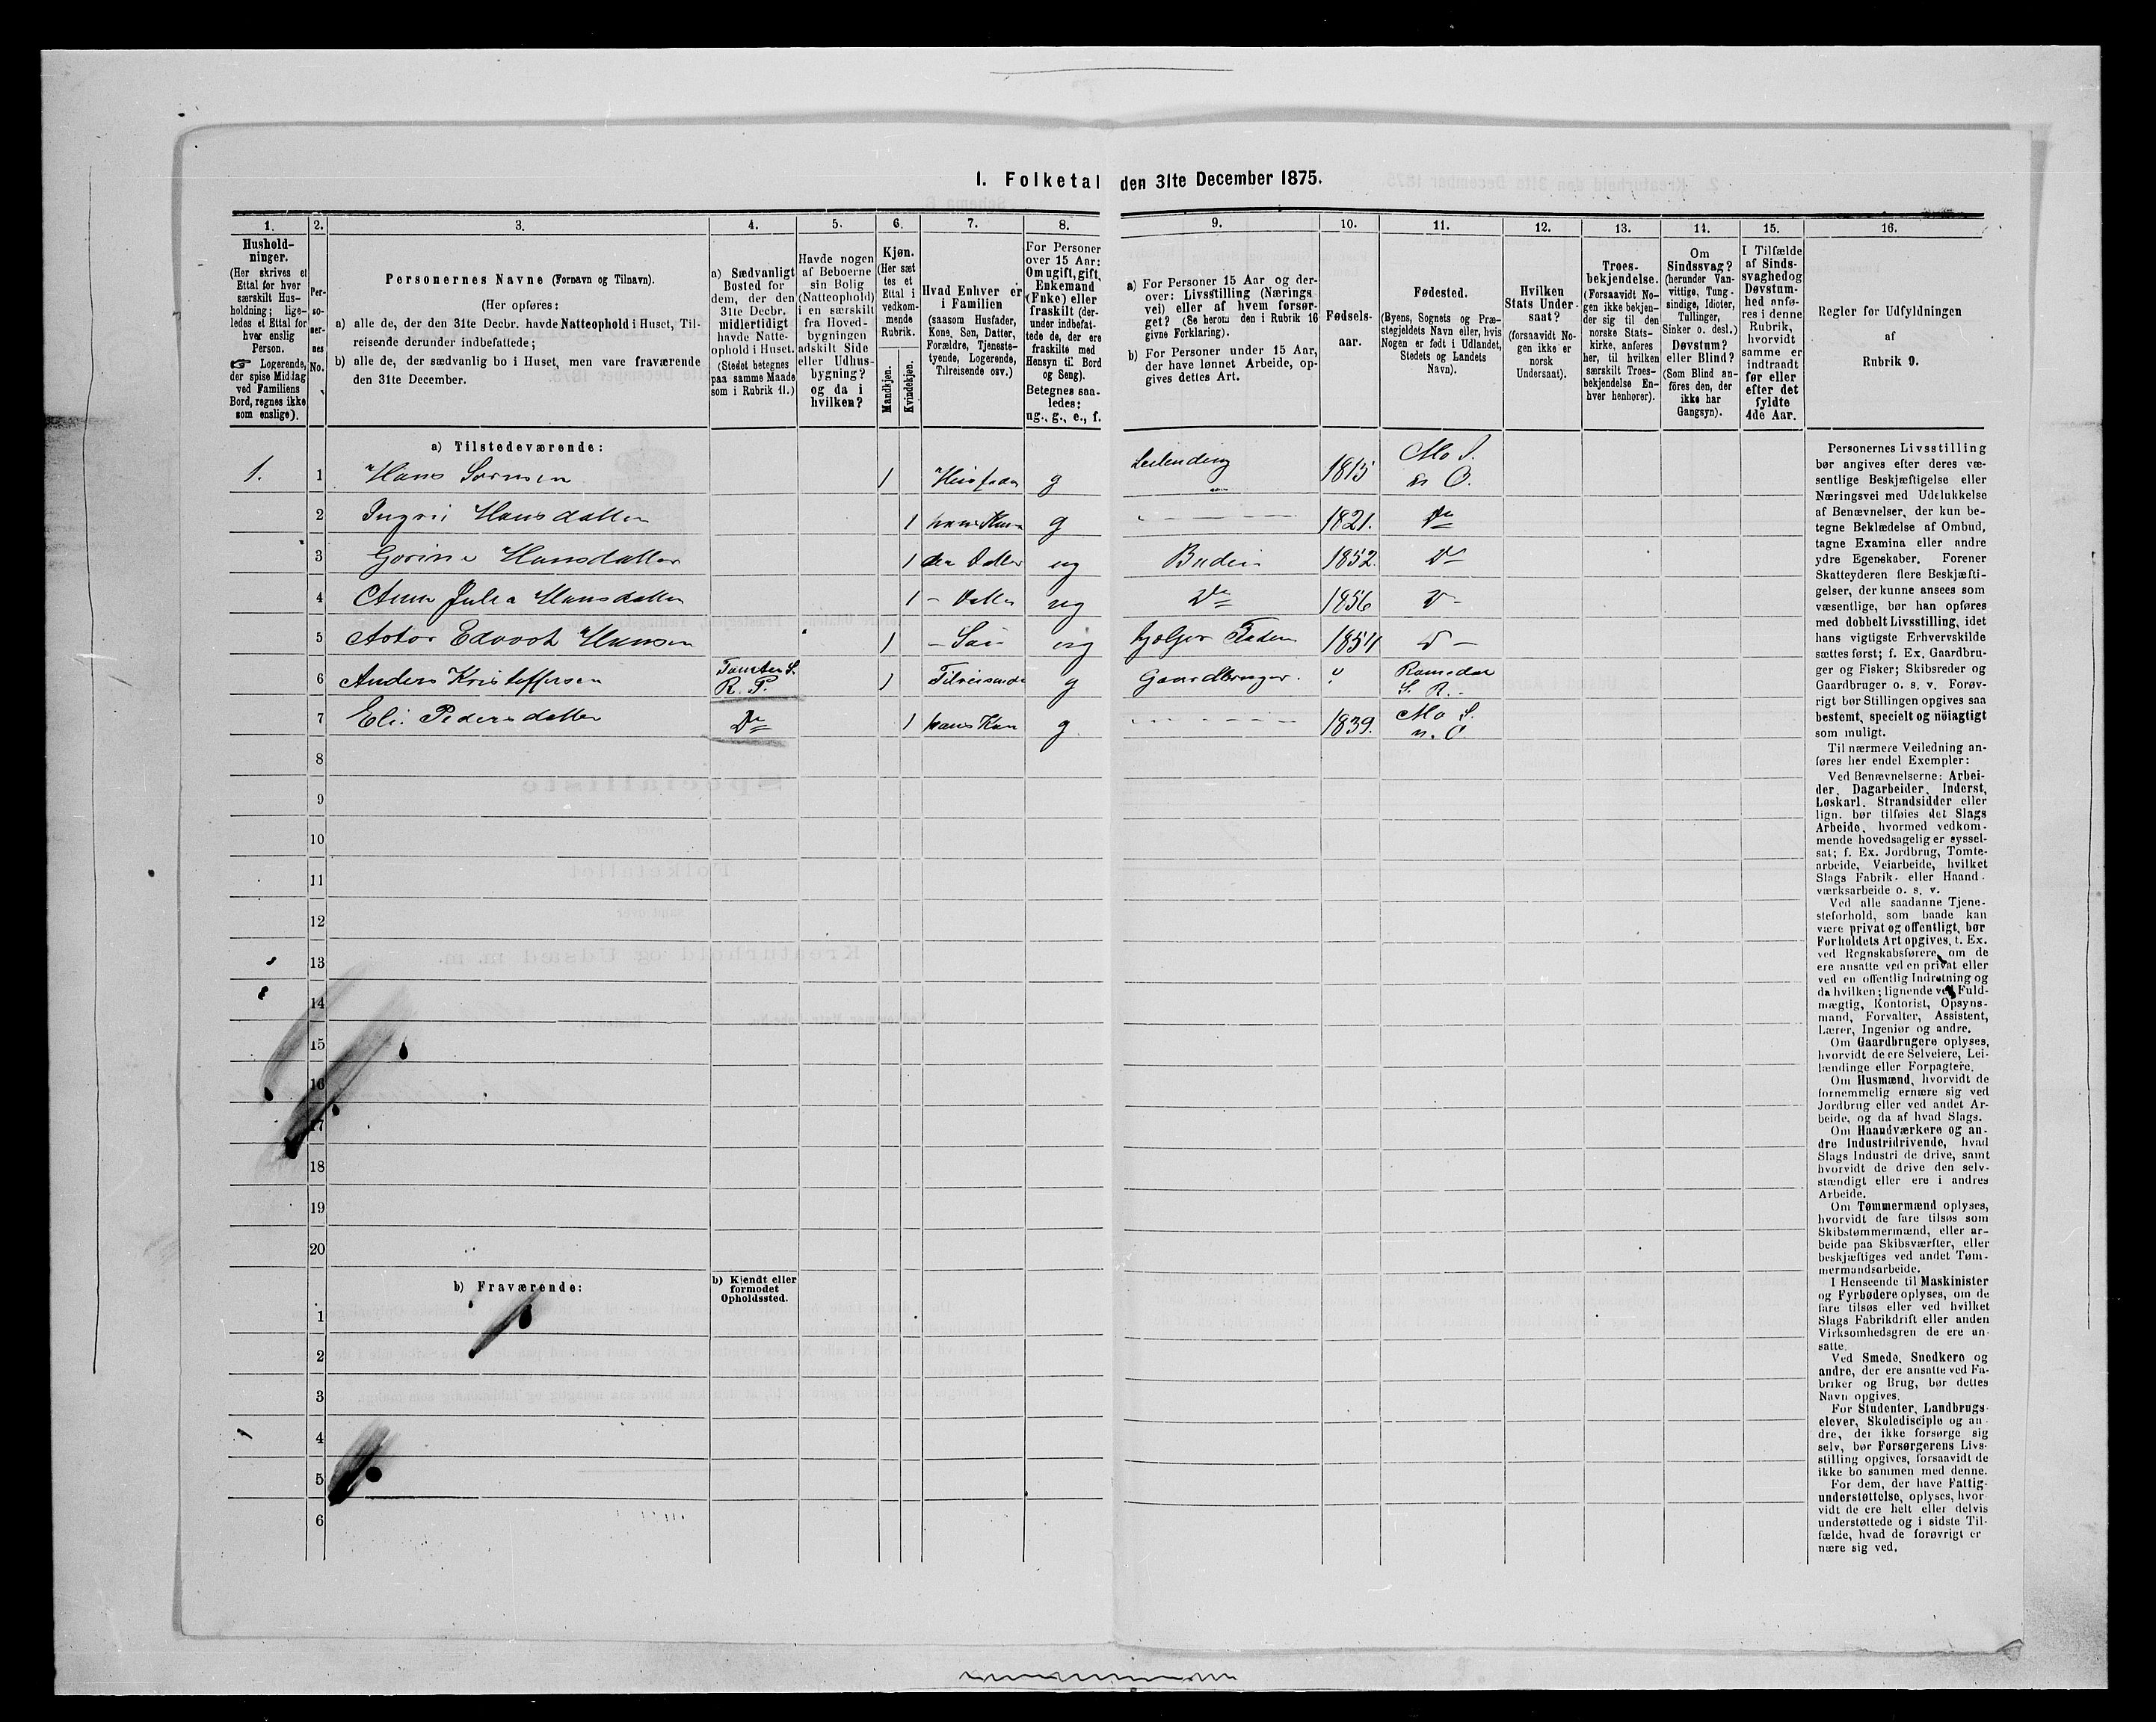 1. Folketal den 31te December 1875.
1. 2. 3. 4. 5. 6. 7. 8. 9. 10. 11. 12. 13. 14. 15. 16.
Hushold-
ninger.
(Her skrives et
Ettal for hver
særskilt Hus-
holdning; lige-
ledes et Ettal for
hver enslig
Person.
☞ Logerende,
der spise Middag
ved Familiens
Bord, regnes ikke
som enslige).
Per-
so-
ner-
nes
No.
Personernes Navne (Fornavn og Tilnavn).
(Her opføres:
a) alle de, der den 31te Decbr. havde Natteophold i Huset, Til-
reisende derunder indbefattede;
b) alle de, der sædvanlig bo i Huset, men vare fraværende
den 31te December.
a) Sædvanligt
Bosted for
dem, der den
31te Decbr.
midlertidigt
havde Natte-
ophold i Huset.
(Stedet betegnes
paa samme Maade
som i Rubrik 11.)
Havde nogen
af Beboerne
sin Bolig
(Natteophold)
i en særskilt
fra Hoved-
bygningen
adskilt Side
eller Udhus-
bygning?
og da i
hvilken?
Kjøn.
(Her sæt
tes et
Ettal i
vedkom-
mende
Rubrik.
Mandkjøn.
Kvindekjøn.
Hvad Enhver er
i Familien
(saasom Husfader,
Kone, Søn, Datter,
Forældre, Tjeneste-
tyende, Logerende,
Tilreisende osv.)
For Personer
over 15 Aar:
Om ugift, gift,
Enkemand
(Enke) eller
fraskilt (der-
under indbefat-
tede de, der ere
fraskilte med
Hensyn til Bord
og Seng).
Betegnes saa-
ledes:
ug., g., e., f.
a) For Personer 15 Aar og der-
over: Livsstilling (Nærings
vei) eller af hvem forsør-
get? (Se herom den i Rubrik 16
givne Forklaring).
b) For Personer under 15 Aar,
der have lønnet Arbeide, op-
gives dettes Art.
Fødsels-
aar.
Fødested.
(Byens, Sognets og Præ-
stegjeldets Navn eller, hvis
Nogen er født i Udlandet,
Stedets og Landets
Navn).
Hvilken
Stats Under-
saat?
(forsaavidt No-
gen ikke er
norsk
Undersaat).
Troes-
bekjendelse.
(Forsaavidt No-
gen ikke bekjen-
der sig til den
norske Stats-
kirke, anføres
her, til hvilken
særskilt Troes-
bekjendelse En-
hver henhører).
Om
Sindssvag?
(herunder Van-
vittige, Tung-
sindige, Idioter,
Tullinger,
Sinker o. desl.)
Døvstum?
eller Blind?
(Som Blind an-
føres den, der
ikke har
Gangsyn).
I Tilfælde
af Sinds-
svaghed og
Døvstum-
hed anfø-
res i denne
Rubrik,
hvorvidt
samme er
indtraadt
før eller
efter det
fyldte
4de Aar.
Regler for Udfyldningen
af
Rubrik 9.
a) Tilstedeværende:
1. 1 Hans Sørensen 1 Husfader g Leilending 1815 Mo S. n O.
2 Ingri Hansdatter 1 hans Kone g 1821. Do
3 Gorine Hansdatter 1 der Datter ug Budeie 1852. Do
4 Anna Julia Hansdatter 1 - Datter ug Do 1856 D -
5 Hansen 1 - Søn ug hjelper Faderen 1854 D -
6 Anders Kristoffersen R. P. 1 Tilreisende g Gaardbruger. Romedal S. R.
7 Eli Pedersdatter Do 1 hans Kone g 1839. Mo S. n. O
8
9
10
11
12
13
14
15
16
17
18
19
20
b) Fraværende:
b) Kjendt eller
formodet
Opholdssted.
1
2
3
4
5
6
Personernes Livsstilling
bør angives efter deres væ-
sentlige Beskjæftigelse eller
Næringsvei med Udelukkelse
af Benævnelser, der kun be-
tegne Beklædelse af Ombud,
tagne Examina eller andre
ydre Egenskaber. Forener
Skatteyderen flere Beskjæfti-
gelser, der kunne ansees som
væsentlige, bør han opføres
med dobbelt Livsstilling, idet
hans vigtigste Erhvervskilde
sættes først; f. Ex. Gaardbru-
ger og Fisker; Skibsreder og
Gaardbruger o. s. v. Forøv-
rigt bør Stillingen opgives saa
bestemt, specielt og nöiagtigt
som muligt.
Til nærmere Veiledning an-
føres her endel Exempler:
Ved Benævnelserne: Arbei-
der, Dagarbeider, Inderst,
Løskarl, Strandsidder eller
lign. bør tilføies det Slags
Arbeide, hvormed vedkom-
mende hovedsagelig er syssel-
sat; f. Ex. Jordbrug, Tomte-
arbeide, Veiarbeide, hvilket
Slags Fabrik- eller Haand-
værksarbeide o. s. v.
Ved alle saadanne Tjene-
steforhold, som baade kan
være privat og offentligt, bør
Forholdets Art opgives, t. Ex.
ved Regnskabsførere, om de
ere ansatte ved en privat eller
ved en offentlig Indretning og
da hvilken; lignende ved Fuld-
mægtig, Kontorist, Opsyns-
mand, Forvalter, Assistent,
Lærer, Ingeniør og andre.
Om Gaardbrugere oplyses,
hvorvidt de ere Selveiere, Lei-
lændinge eller Forpagtere.
Om Husmænd, hvorvidt de
fornemmelig ernære sig ved
Jordbrug eller ved andet Ar-
beide, og da af hvad Slags.
Om Haandværkere og an-
dre Industridrivende, hvad
Slags Industri de drive, samt
hvorvidt de drive den selv-
stændigt eller ere i andres
Arbeide.
Om Tømmermænd oplyses,
hvorvidt de fare tilsøs som
Skibstømmermænd, eller ar-
beide paa Skibsværfter, eller
beskjæftiges ved andet Tøm-
mermandsarbeide.
I Henseende til Maskinister
og Fyrbødere oplyses, om de
fare tilsøs eller ved hvilket
Slags Fabrikdrift eller anden
Virksomhedsgren de ere an-
satte.
Ved Smede, Snedkere og
andre, der ere ansatte ved Fa-
briker og Brug, bør dettes
Navn opgives.
For Studenter, Landbrugs-
elever, Skoledisciple og an-
dre, der ikke forsørge sig
selv, bør Forsørgerens Livs-
stilling opgives, forsaavidt de
ikke bo sammen med denne.
For dem, der have Fattig-
understøttelse, oplyses, hvor-
vidt de ere helt eller delvis
understøttede og i sidste Til-
fælde, hvad de forøvrigt er
nære sig ved.